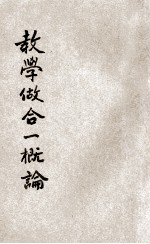 教學做合一概論